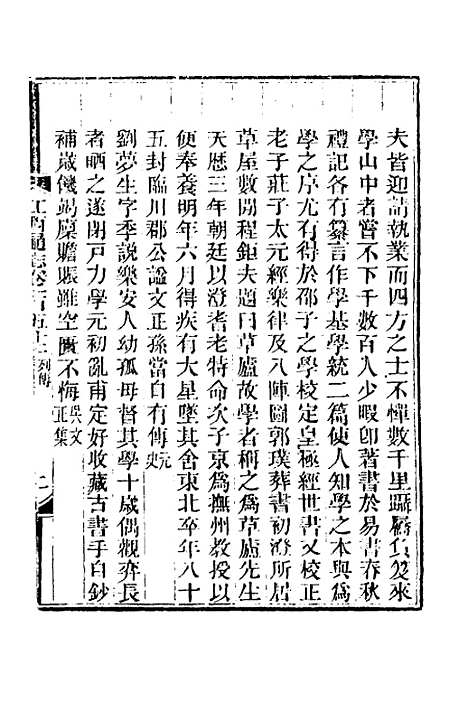 夫皆迎請執業而四方之士不憚數千里躡屩負笈來
學山中者嘗不下千數百人少暇卽著書於易書春秋
禮記各有纂言作學基學統二篇使人知學之本與爲
學之序尤有得於邵子之學校定皇極經世書又校正
老子莊子太元經樂律及八陣圖郭璞葬書初澄所居
草屋數間程鉅夫題曰草廬故學者稱之爲草廬先生
天歷三年朝廷以澄耆老特命次子京爲撫州教授以
便奉養明年六月得疾有大星墜其舍東北卒年八十
五封臨川郡公諡文正孫當自有傳元史
劉夢生字季說樂安人幼孤母督其學十歲偶觀弈長
者哂之遂閉戶力學元初亂甫定好收藏古書手自鈔
補歲饑竭廩贍賑雖空匱不悔吳文正集
江西通志卷一百五十二 列傳